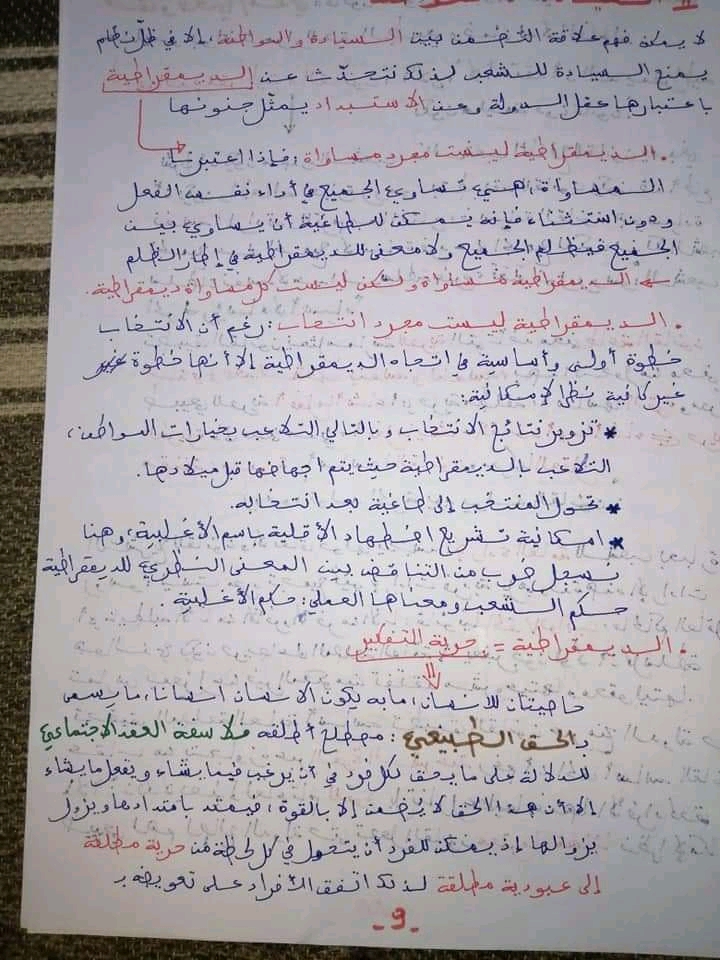 لا يمكن فهم علاقة التضمن بين السيادة والمواطنة، إلا في ظل نظام
يمنح السيادة للشعب لذلك نتحدث عن الديمقراطية
باعتبارها عقل الدولة وعن الاستبداد يمثل جنونها
. الديمقراطية ليست مجرد مساواة: فإذا اعتبرنا
المساواة، هي تساوي الجميع في أداء نفس الفعل
ودون استثناء فإنه يمكن للطاغية أن يساوي بين
الجميع فيظلم الجميع ولا معنى للديمقراطية في إطار الظلم
الديمقراطية مساواة ولكن ليست كل مساواة ديمقراطية.
. الديمقراطية ليست مجرد انتخاب: رغم أن الانتخاب
خطوة أولى وأساسية في اتجاه الديمقراطية إلا أنها خطوة غير
غير كافية نظرا لإمكانية:
* تزوير نتائج الانتخاب وبالتالي التلاعب بخيارات المواطن،
التلاعب بالديمقراطية حيث يتم اجهاضها قبل ميلادها.
* تحول المنتخب إلى طاغية بعد انتخابه.
* امكانية تشريع اضطهاد الأقلية باسم الأغلبية، وهنا
نسجل ضرب من التناقض بين المعنى النظري للديمقراطية
حكم الشعب ومعناها العملي: حكم الأغلبية.
. الديمقراطية = حرية التفكير
خاصيتان للانسان، ما به يكون الانسان انسانا، ما يسمى
بالحق الطبيعي: مصطلح أطلقه فلاسفة العقد الاجتماعي
للدلالة على ما يحق لكل فرد في أن يرغب فيما يشاء ويفعل ما يشاء
إلا أن هذا الحق لا يضمن إلا بالقوة، فيمتد بامتدادها ويزول
بزوالها إذ يمكن للفرد أن يتحول في كل لحظة من حرية مطلقة
إلى عبودية مطلقة لذلك اتفق الأفراد على تعويضه بـ
- 9 -